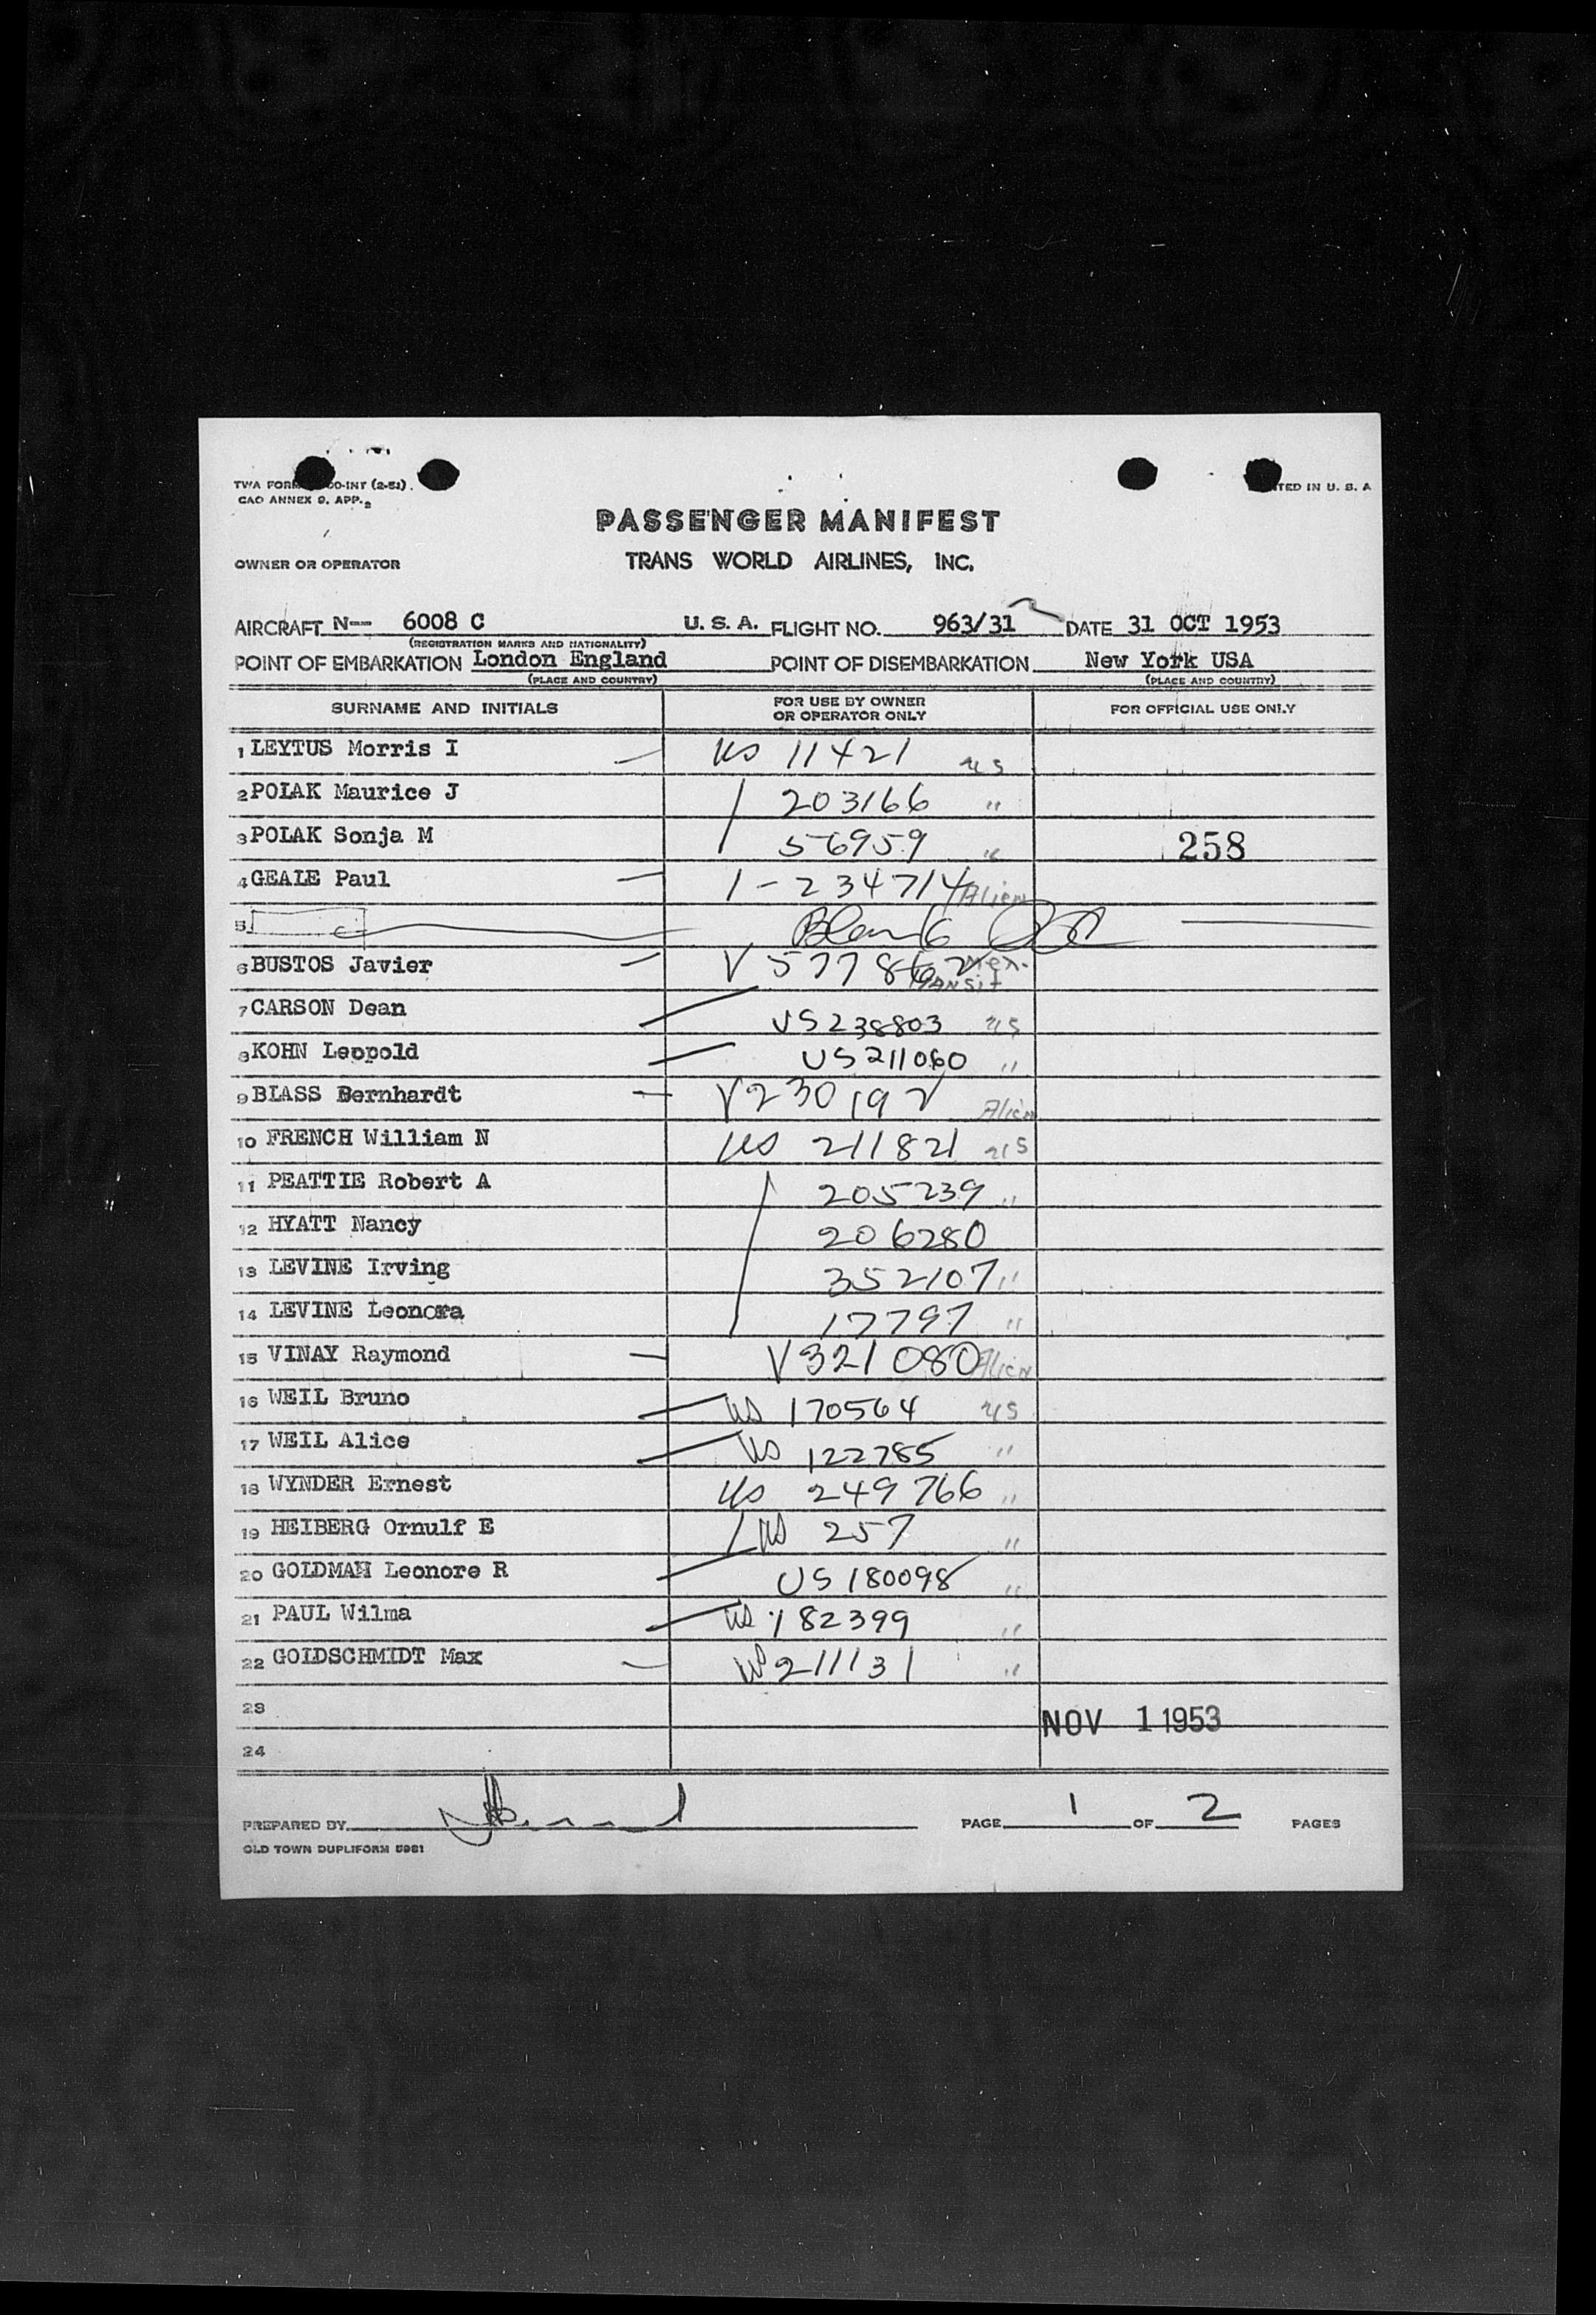 TWA FORM OO-INT (2-51)
CAO ANNEX 9. APP. 2
PRINTED IN U. S. A
PASSENGER MANIFEST
OWNER OR OPERATOR TRANS WORLD AIRLINES, INC.
AIRCRAFT N-- 6008 C U. S. A. FLIGHT NO. 963/31 2 DATE 31 OCT 1953
(REGISTRATION MARKS AND NATIONALITY)
POINT OF EMBARKATION London England POINT OF DISEMBARKATION New York USA
(PLACE AND COUNTRY) (PLACE AND COUNTRY)
SURNAME AND INITIALS FOR USE BY OWNER OR OPERATOR ONLY FOR OFFICIAL USE ONLY
1 LEYTUS Morris I US 11421 US
2 POLAK Maurice J 203166 "
3 POLAK Sonja M 56959 " 258
4 GEALE Paul 1-234714 Alien
5 Blank
6 BUSTOS Javier V577862 Mex. TRANSit
7 CARSON Dean US238803 US
8 KOHN Leopold US211060 "
9 BLASS Bernhardt V230192 Alien
10 FRENCH William N US 211821 US
11 PEATTIE Robert A 205239 "
12 HYATT Nancy 206280
13 LEVINE Irving 352107 "
14 LEVINE Leonora 17797 "
15 VINAY Raymond V321080 Alien
16 WEIL Bruno US 170564 US
17 WEIL Alice US 122785 "
18 WYNDER Ernest US 249766 "
19 HEIBERG Ornulf E US 257 "
20 GOLDMAN Leonore R US 180098 "
21 PAUL Wilma US 182399 "
22 GOLDSCHMIDT Max US 211131 "
23
NOV 1 1953
24
PREPARED BY PAGE 1 OF 2 PAGES
OLD TOWN DUPLIFORM 5981